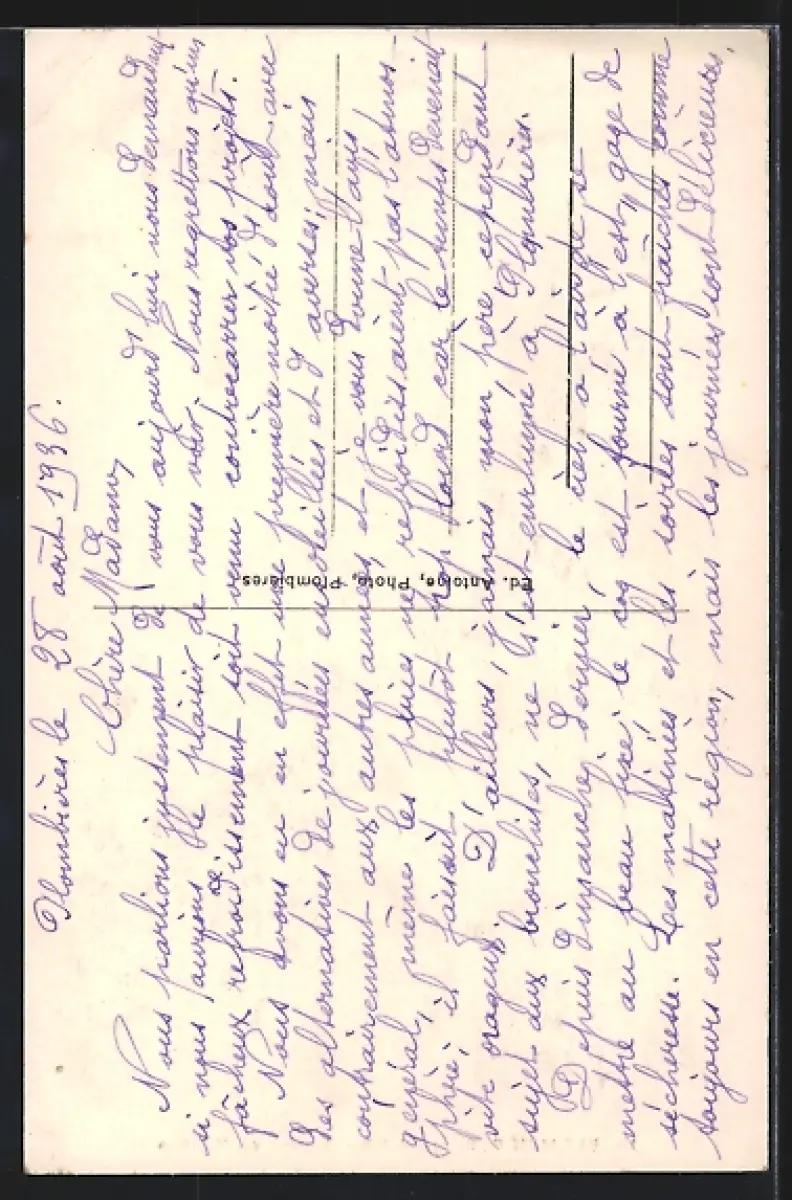 Plombières le 28 août 1936.
Chère Madame,
Nous parlions justement de vous aujourd'hui nous demandant
si nous aurions le plaisir de vous voir. Nous regrettons qu'un
fâcheux refroidissement soit venu contrecarrer vos projets.
Nous avons eu en effet une première moitié d'août avec
des alternatives de journées ensoleillées et d'averses, mais
contrairement aux autres années, et je vous donne l'avis
général, même les pluies ne refroidissaient pas l'atmos-
phère, il faisait plutôt trop lourd car le temps devenait
vite orageux. D'ailleurs, jamais mon père cependant
sujet aux bronchites, ne s'est enrhumé à Plombières.
Depuis dimanche dernier, le ciel a l'air de se
mettre au beau fixe, le coq est tourné à l'est, gage de
sécheresse. Les matinées et les soirées sont fraîches comme
toujours en cette région, mais les journées sont délicieuses.
Ed. Antoine, Photo, Plombières